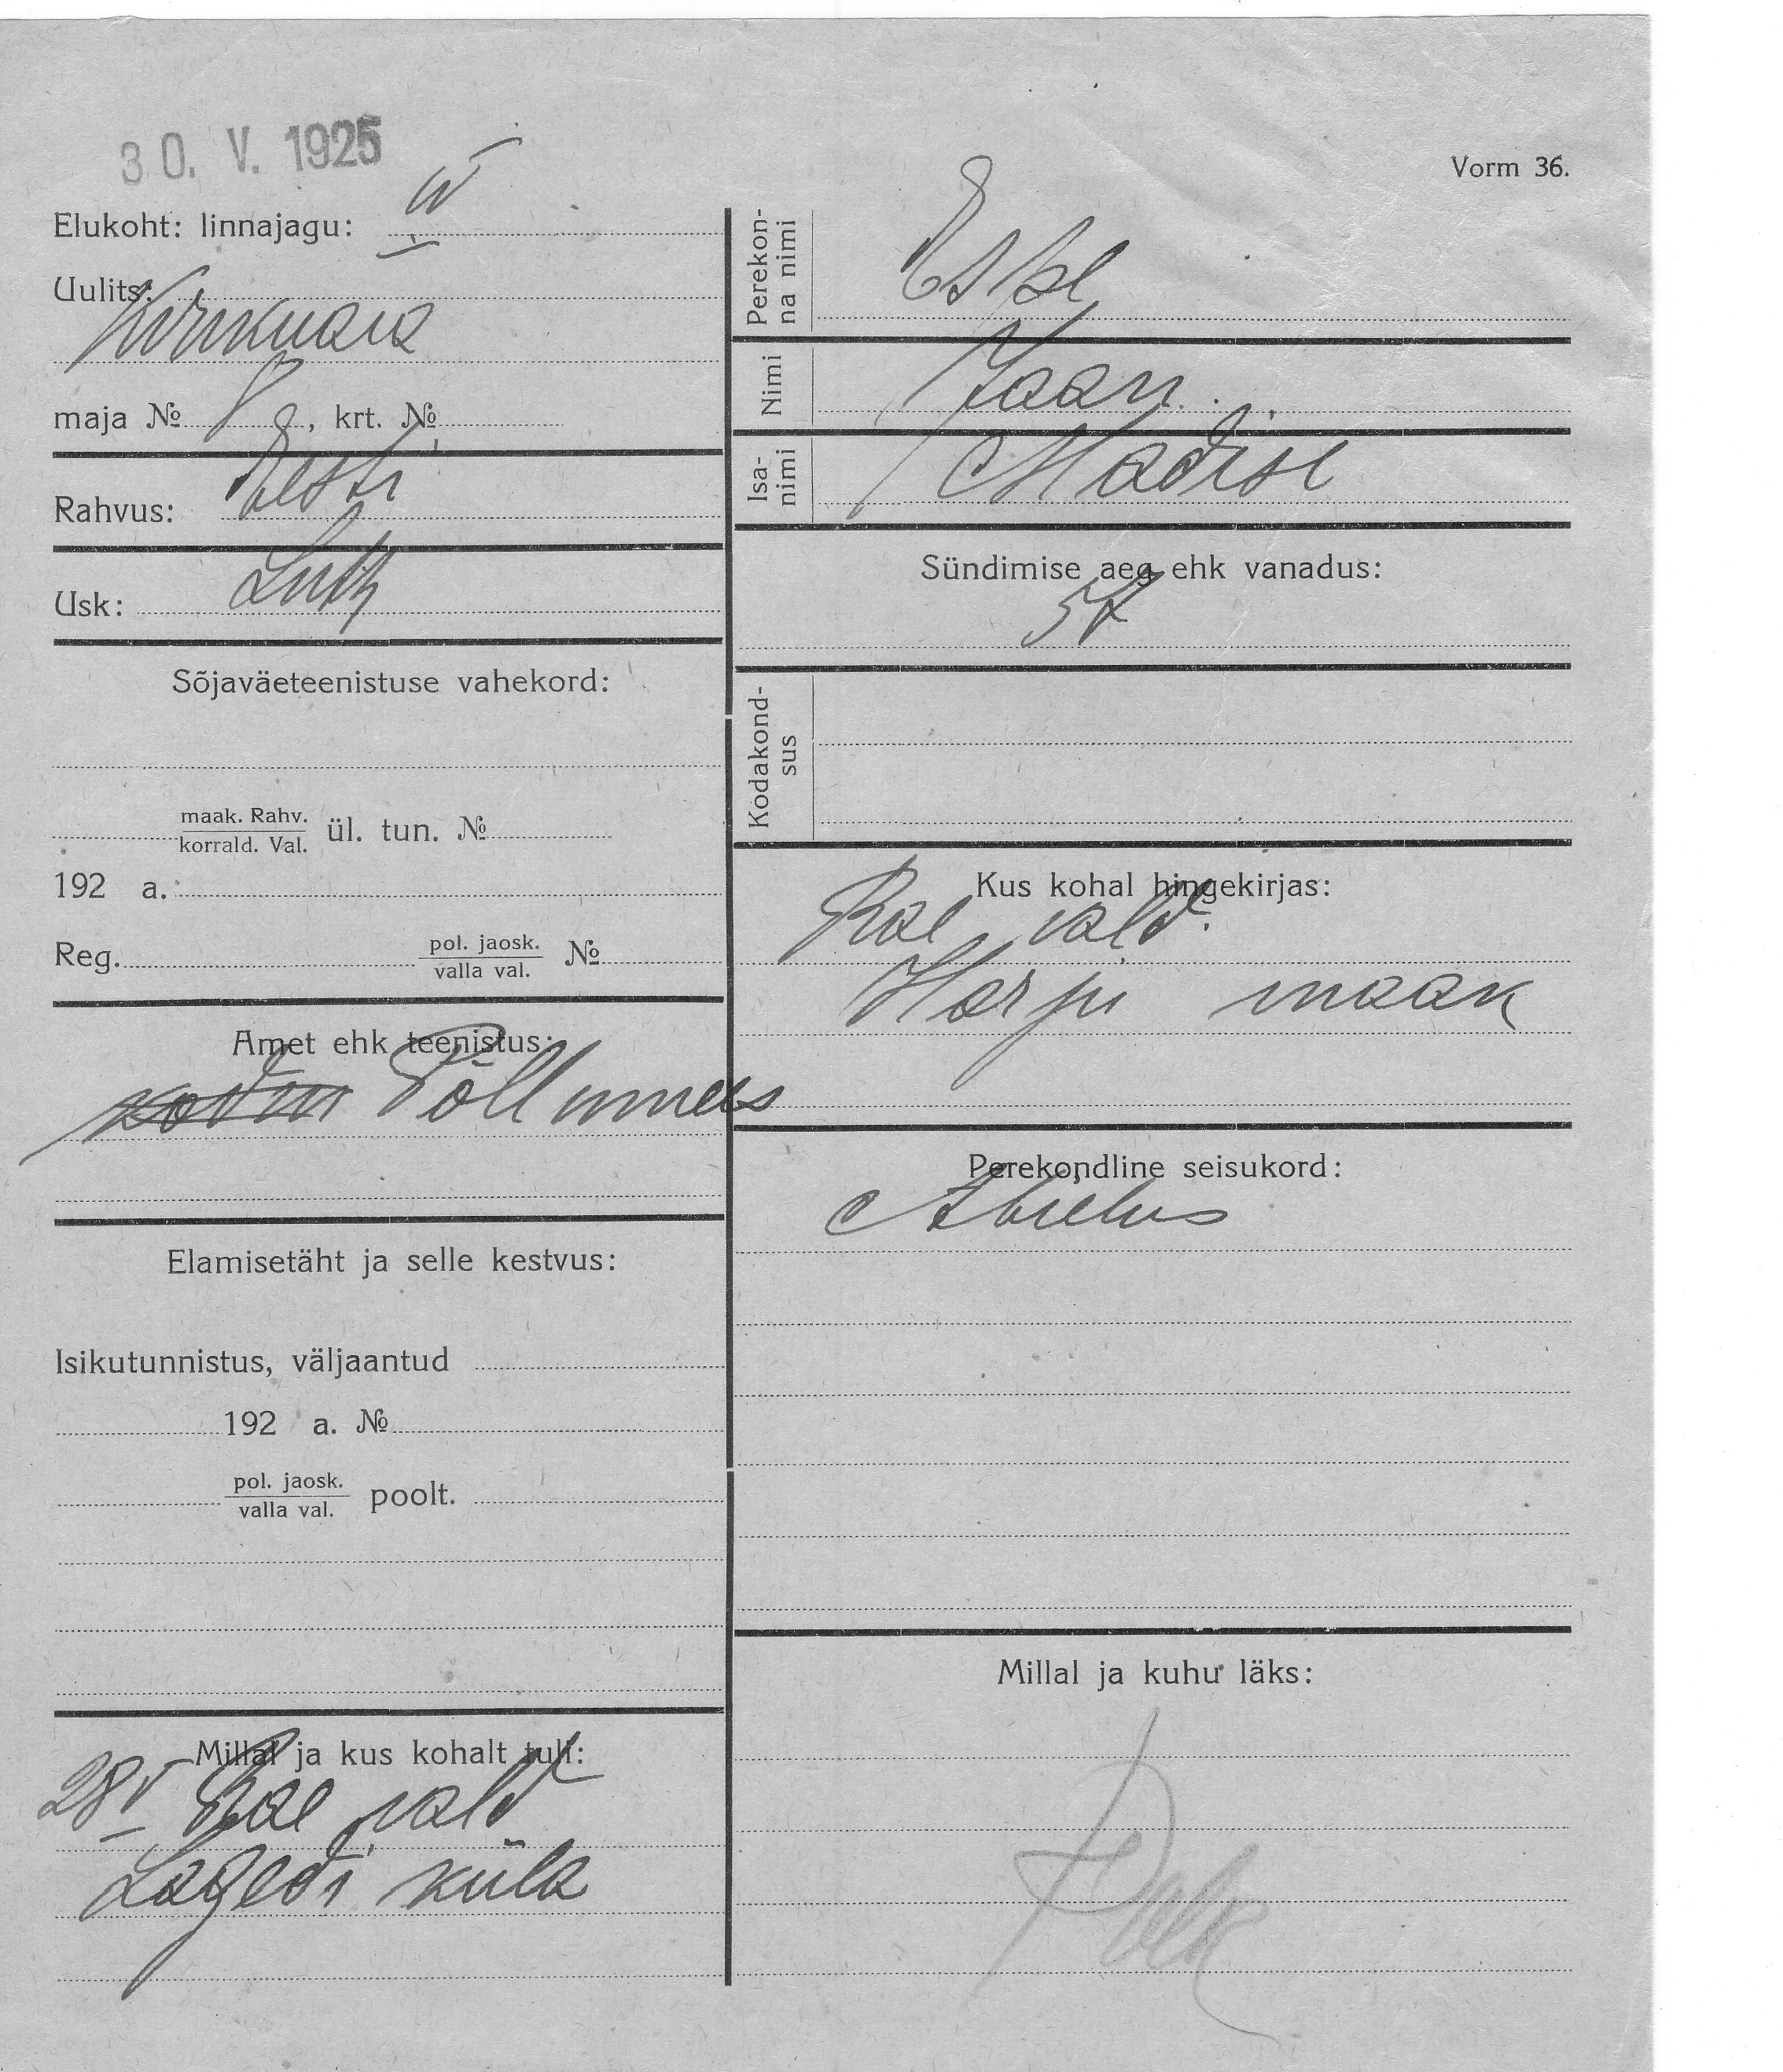 30. V. 1925
Vorm 36.
Elukoht: linnajagu: IV
Uulits:
maja № 8, krt. №
Rahvus: Eesti
Usk: Luth
Sõjaväeteenistuse vahekord:
maak. Rahv.
korrald. Val. ül. tun. №
192 a.
Reg. pol. jaosk.
valla val. №
Amet ehk teenistus:
Põllumees
Elamisetäht ja selle kestvus:
Isikutunnistus, väljaantud
192 a. №
pol. jaosk.
valla val. poolt.
Millal ja kus kohalt tuli:
28 V Rae vald
Lagedi küla
Perekon-
na nimi
Nimi Jaan
Isa-
nimi Madise
Sündimise aeg ehk vanadus:
57
Kodakond-
sus
Kus kohal hingekirjas:
Rae vald.
Harju maak
Perekondline seisukord:
Abielus
Millal ja kuhu läks: